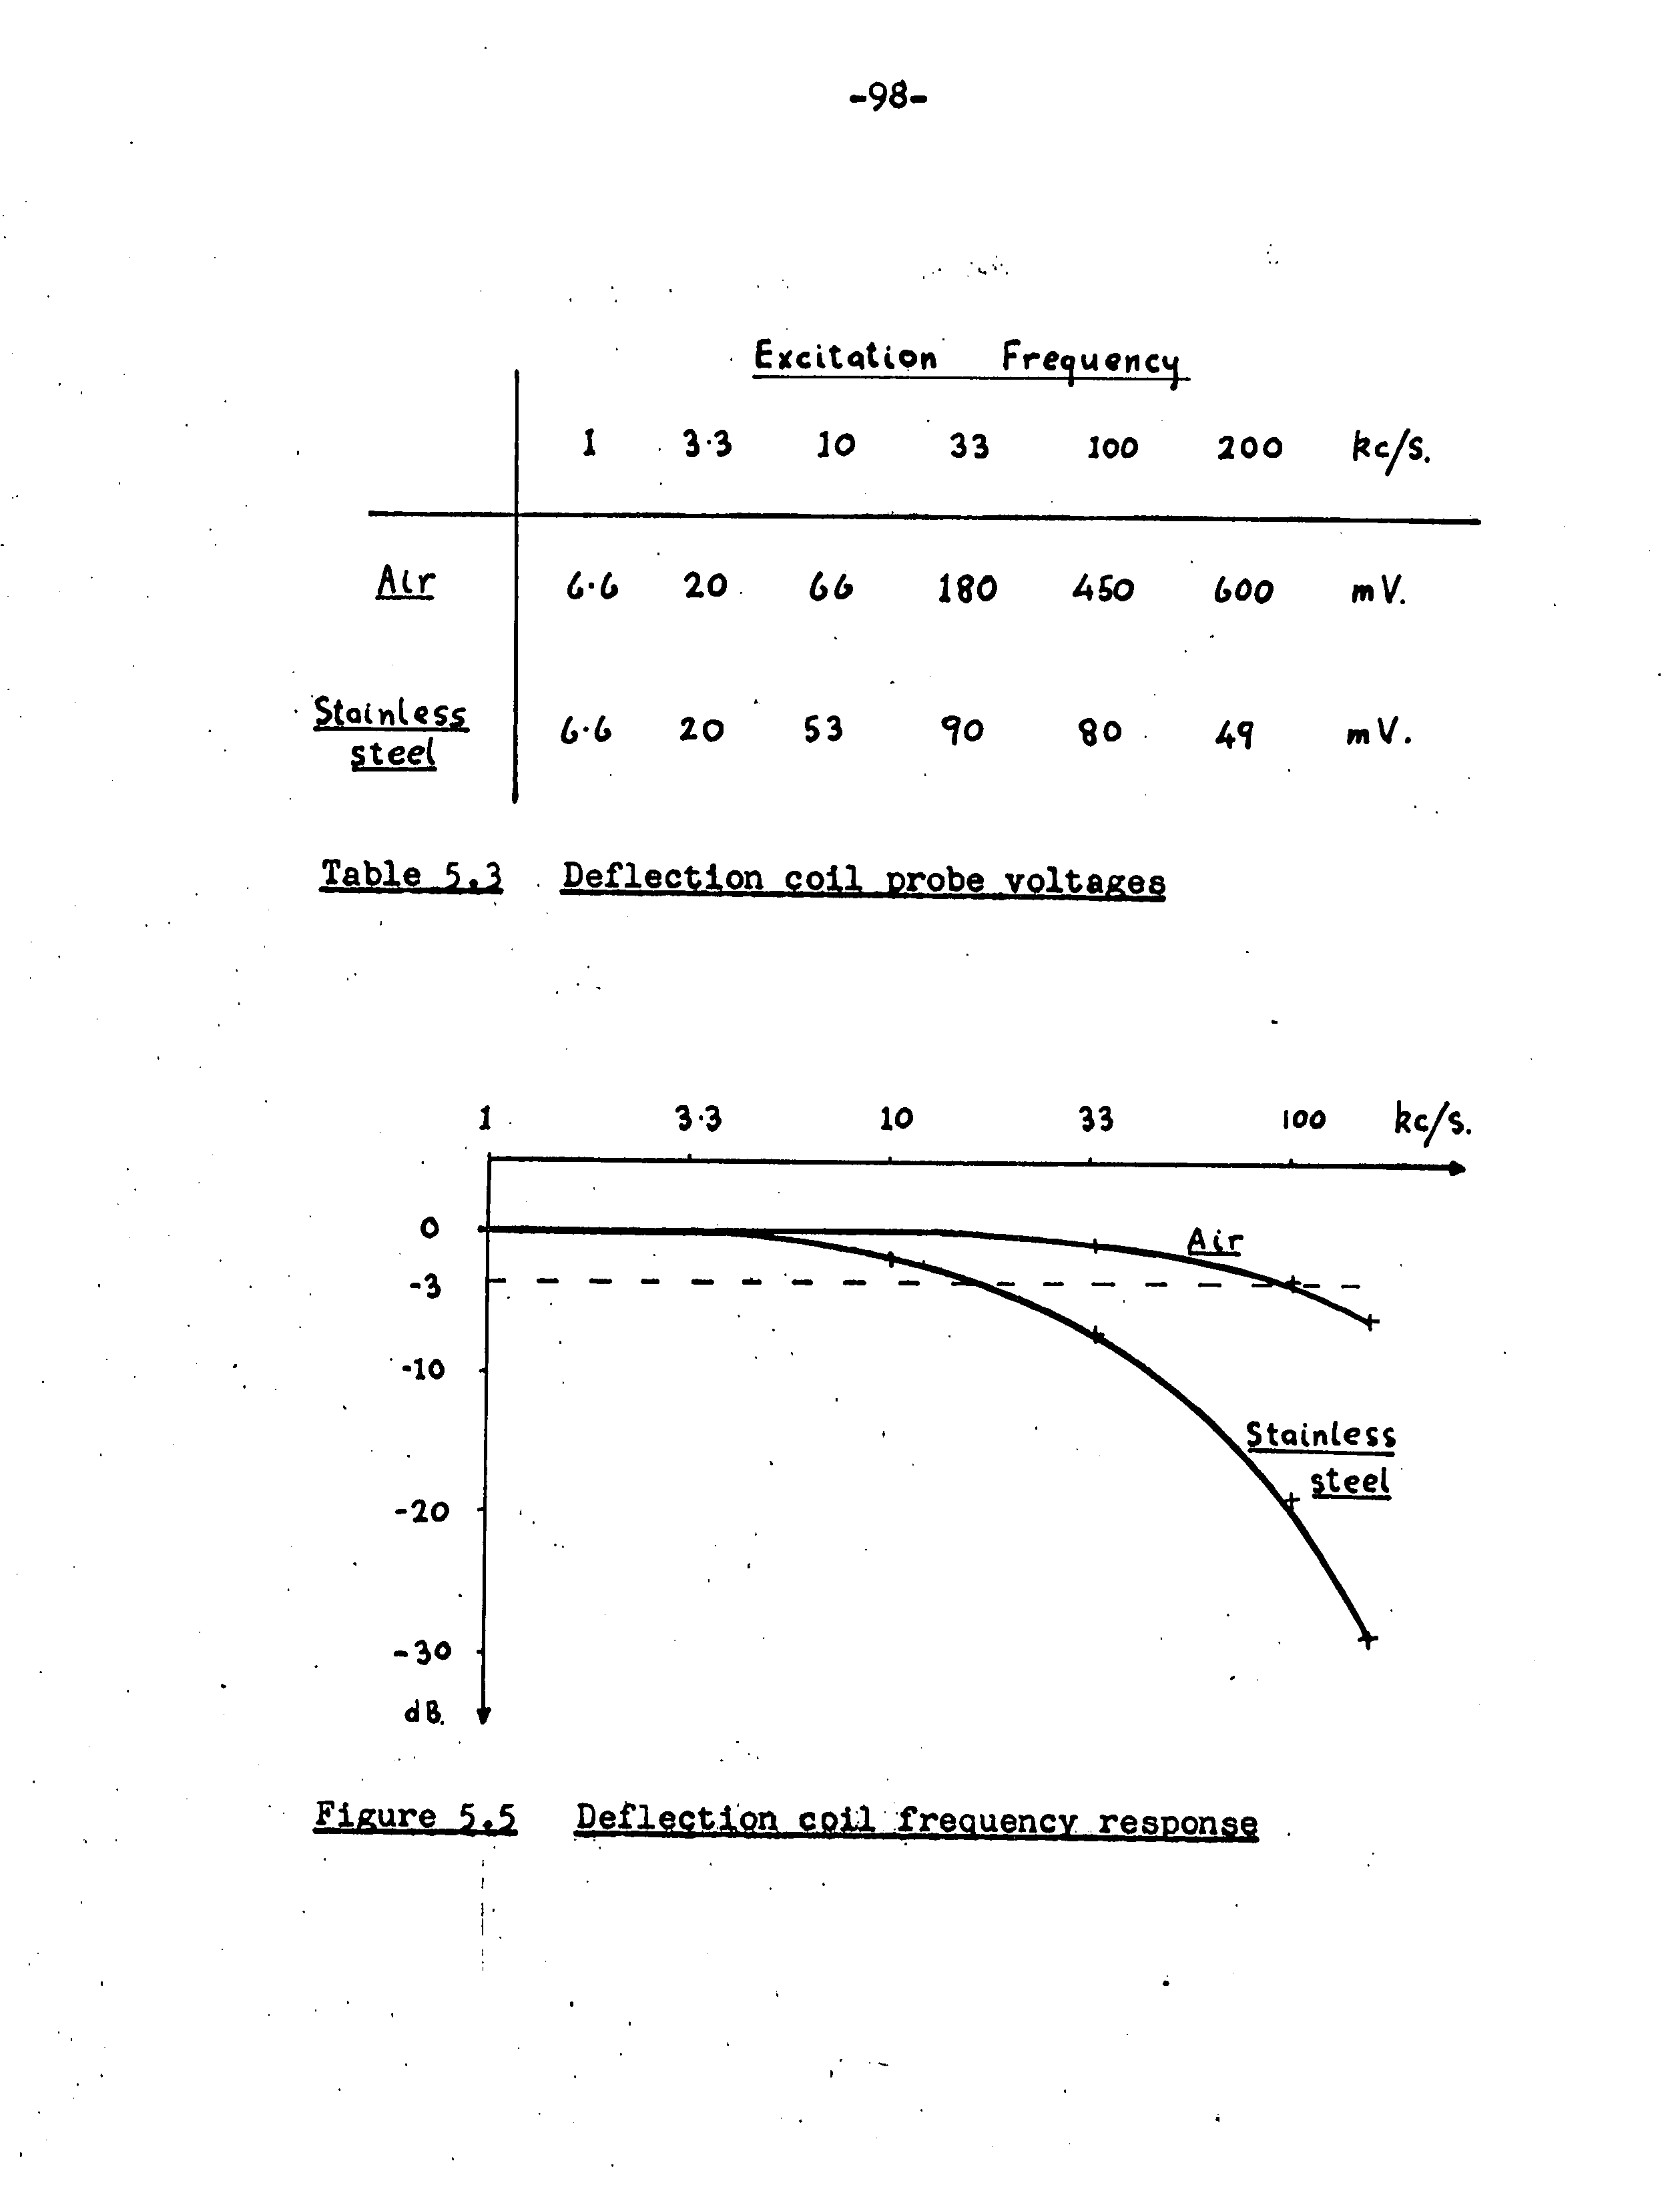 -98-
Excitation Frequency
1 3.3 10 33 100 200 kc/s.
Air 6.6 20 66 180 450 600 mV.
Stainless
steel 6.6 20 53 90 80 49 mV.
Table 5.3 Deflection coil probe voltages
1 3.3 10 33 100 kc/s.
0
Air
-3
-10
Stainless
steel
-20
-30
dB.
Figure 5.5 Deflection coil frequency response